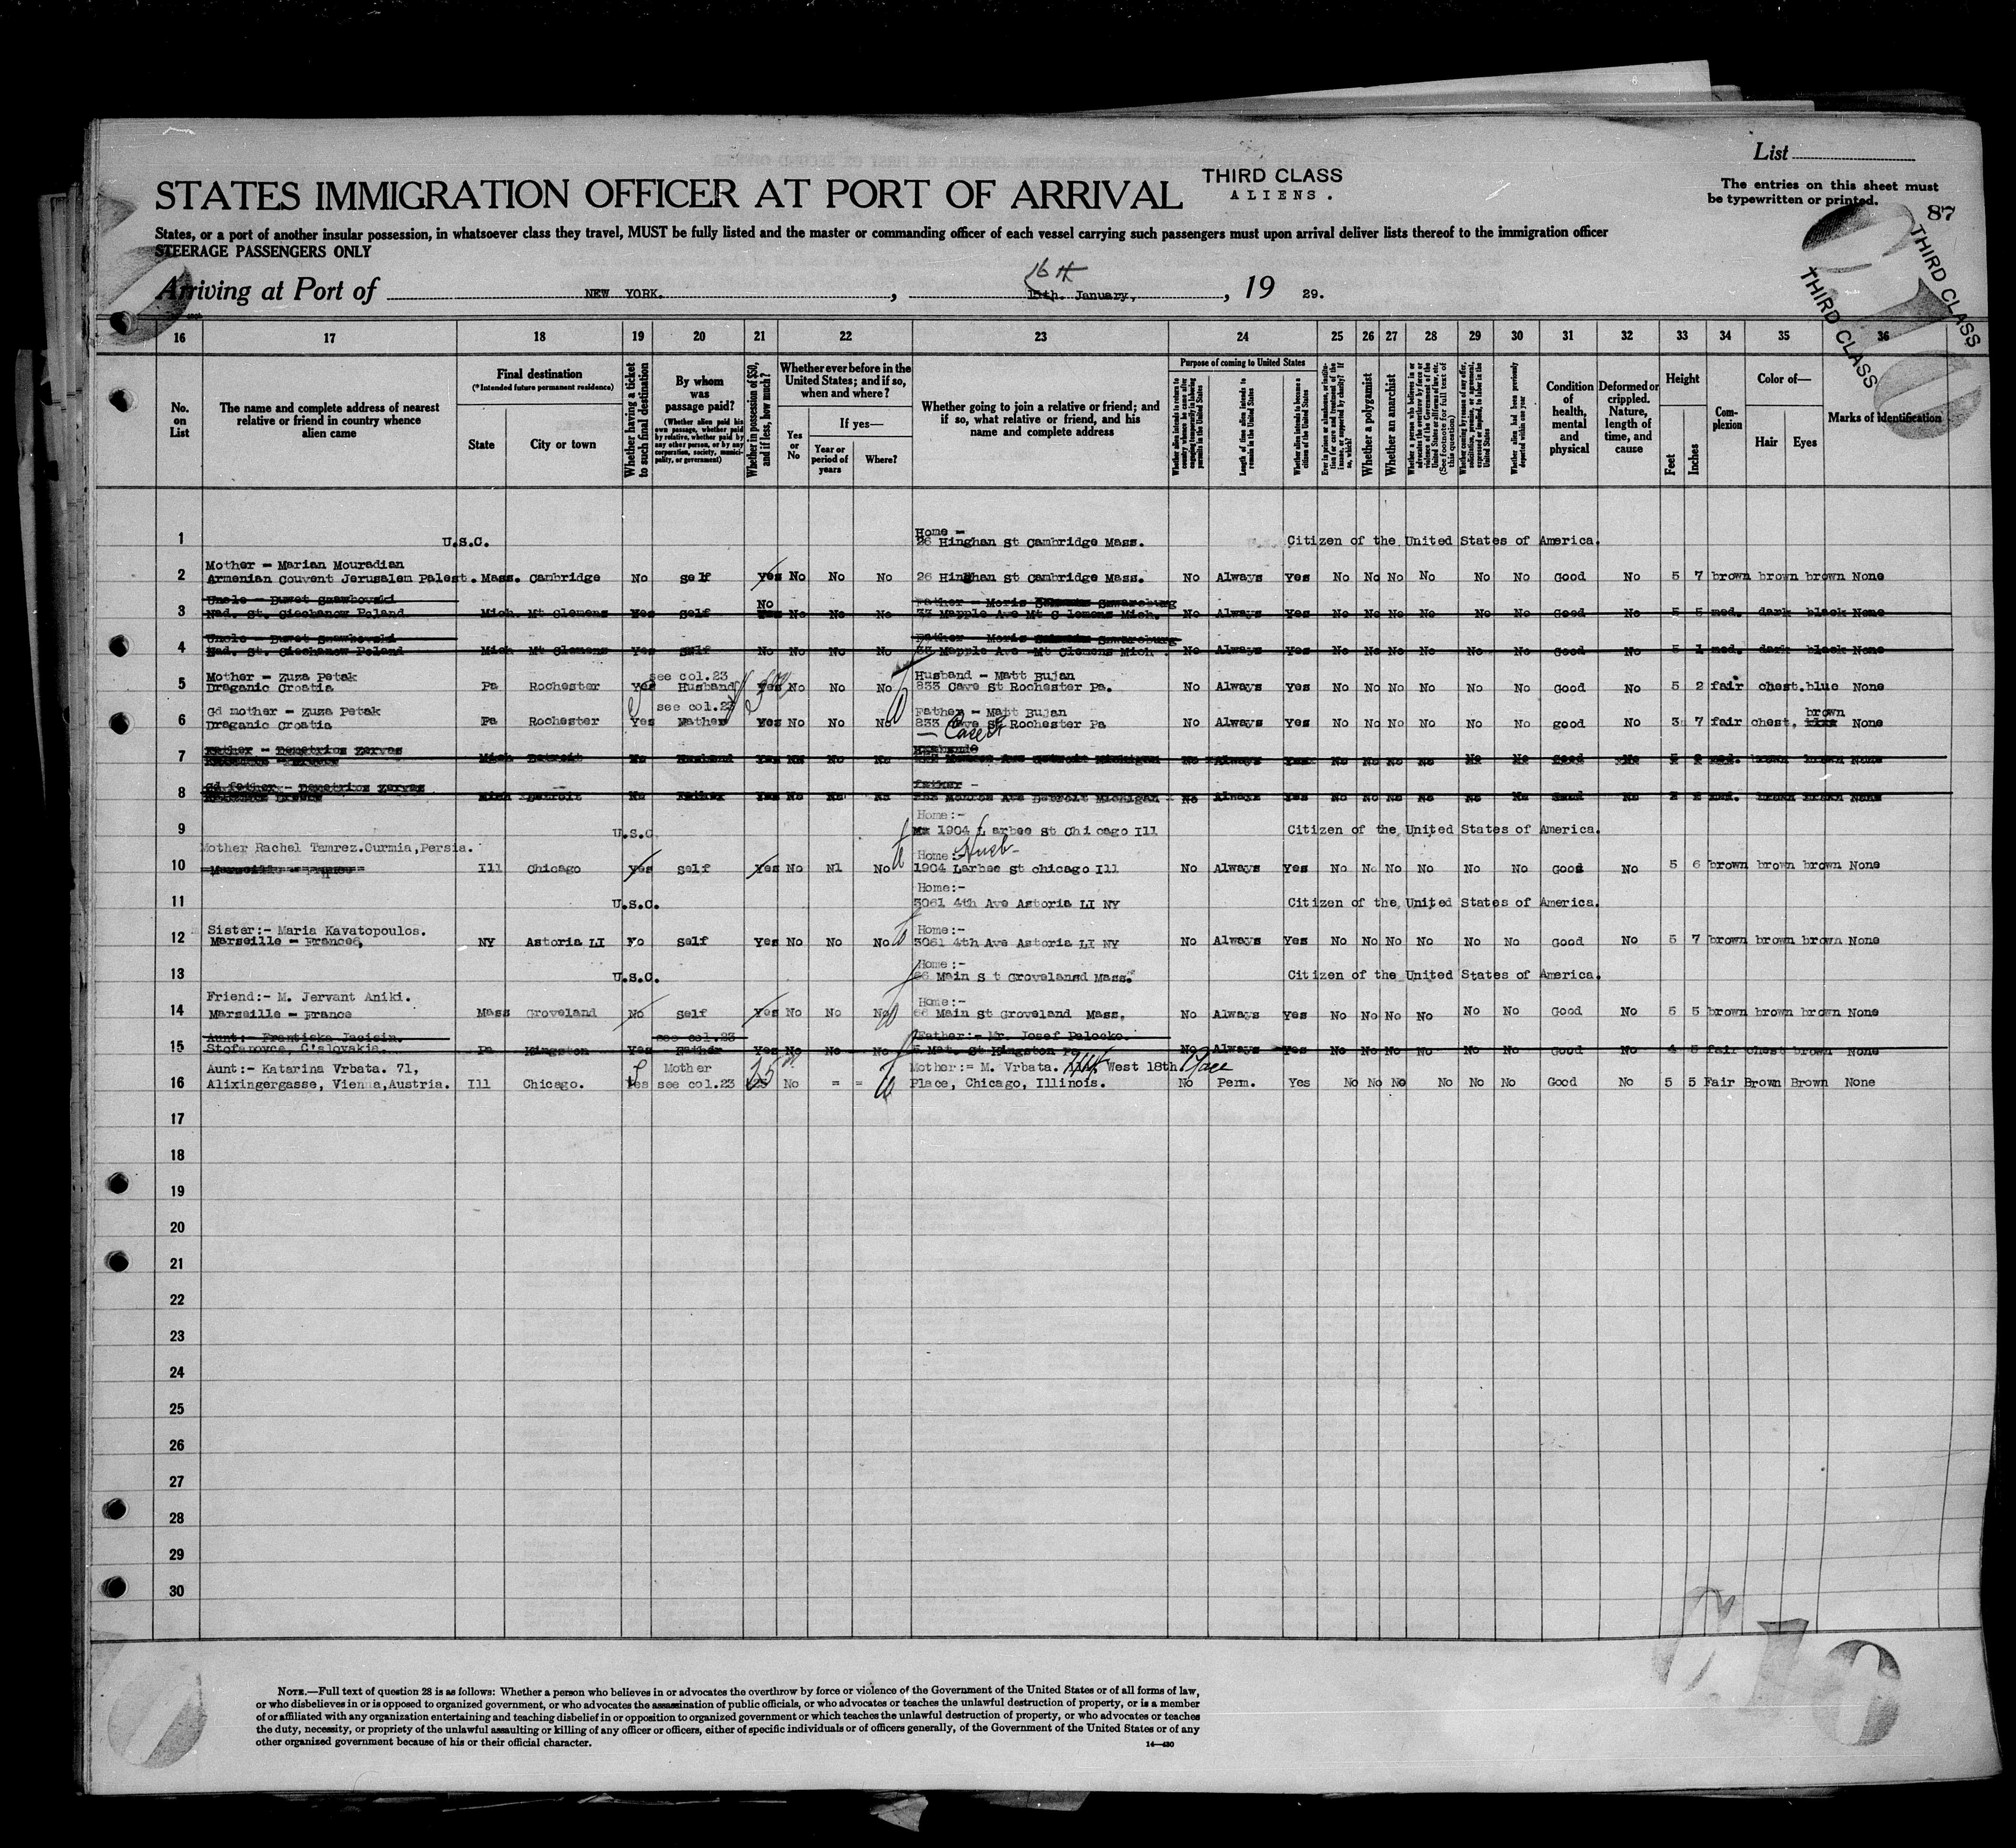 List
The entries on this sheet must
be typewritten or printed.
87
THIRD CLASS
THIRD CLASS
STATES IMMIGRATION OFFICER AT PORT OF ARRIVAL
THIRD CLASS
ALIENS.
States, or a port of another insular possession, in whatsoever class they travel, MUST be fully listed and the master or commanding officer of each vessel carrying such passengers must upon arrival deliver lists thereof to the immigration officer
STEERAGE PASSENGERS ONLY
Arriving at Port of NEW YORK. , 16th
15th. January, , 19 29.
16 17 18 19 20 21 22 23 24 25 26 27 28 29 30 31 32 33 34 35 36
No. on List
The name and complete address of nearest relative or friend in country whence alien came
Final destination
(*Intended future permanent residence)
State
City or town
Whether having a ticket to such final destination
By whom was passage paid?
(Whether alien paid his own passage, whether paid by relative, whether paid by any other person, or by any corporation, society, municipality, or government)
Whether in possession of $50, and if less, how much?
Whether ever before in the United States; and if so, when and where?
Yes or No
If yes—
Year or period of years
Where?
Whether going to join a relative or friend; and if so, what relative or friend, and his name and complete address
Purpose of coming to United States
Length of time alien intends to remain in the United States
Whether alien intends to become a citizen of the United States
Whether a polygamist
Whether an anarchist
Whether alien had been previously deported within one year
Condition of health, mental and physical
Deformed or crippled. Nature, length of time, and cause
Height
Feet
Inches
Complexion
Color of—
Hair
Eyes
Marks of identification
Home -
1 U.S.C. 26 Hinghan St Cambridge Mass. Citizen of the United States of America.
Mother - Marian Mouradian
2 Armenian Couvent Jerusalem Palest. Mass. Cambridge No self yes No No No 26 Hinghan St Cambridge Mass. No Always Yes No No No No No No Good No 5 7 brown brown brown None
No Father - Moris Szwarcburg
3 Nad. St. Ciechanow Poland Mich Mt Clemens Yes Self No No No 33 Mapple Ave Mt Clemens Mich. No Always Yes No No No No No No Good No 5 5 med. dark black None
Father - Moris Szwarcburg
4 Nad. St. Ciechanow Poland Mich Mt Clemens Yes self No No No No 33 Mapple Ave Mt Clemens Mich. No Always Yes No No No No No No Good No 5 1 med. dark black None
Mother - Zuza Petak see col.23 Husband - Matt Bujan
5 Draganic Croatia Pa Rochester Yes Husband Yes No No No 833 Cave St Rochester Pa. No Always Yes No No No No No No Good No 5 2 fair chest. blue None
Gd mother - Zuza Petak see col.23 Father - Matt Bujan brown
6 Draganic Croatia Pa Rochester Yes Mather Yes No No No 833 Cave St Rochester Pa No Always Yes No No No No No No good No 3 7 fair chest. None
Father - Demetrios Zervas
7 Mich Detroit No Husband Yes No No No Detroit Michigan No Always Yes No No No No No No Good No med. brown brown None
Gd father - Demetrios Zervas Father -
8 Mich Detroit No Father Yes No No No Monroe Ave Detroit Michigan No Always Yes No No No No No No No med. brown brown None
Home:-
9 U.S.C. 1904 Larbee St Chicago Ill Citizen of the United States of America.
Mother Rachel Tamrez. Ourmia, Persia. Home:- Husb-
10 Ill Chicago Yes Self Yes No Nl No 1904 Larbee st chicago Ill No Always Yes No No No No No No Good No 5 6 brown brown brown None
Home:-
11 U.S.C. 3061 4th Ave Astoria LI NY Citizen of the United States of America.
Sister:- Maria Kavatopoulos. Home:-
12 Marseille - France NY Astoria LI Fo self Yes No No No 3061 4th Ave Astoria LI NY No Always Yes No No No No No No Good No 5 7 brown brown brown None
Home:-
13 U.S.C. 66 Main S t Grovelansd Mass. Citizen of the United States of America.
Friend:- M. Jervant Aniki. Home:-
14 Marseille - France Mass Groveland No self Yes No No No 66 Main St Groveland Mass. No Always Yes No No No No No No Good No 5 5 brown brown brown None
Aunt:- Frantiska Jacisin. see col.23 Father:- Mr. Josef Palocko.
15 Stofanovce, C'slovakia. Pa Kingston Yes Father Yes No No No Mat. St Kingston Pa No Always Yes No No No No No No Good No 4 5 fair chest brown None
Aunt:- Katarina Vrbata. 71, Mother Mother:= M. Vrbata. West 18th Place
16 Alixingergasse, Vienna, Austria. Ill Chicago. Yes see col.23 No = = Place, Chicago, Illinois. No Perm. Yes No No No No No No Good No 5 5 Fair Brown Brown None
17
18
19
20
21
22
23
24
25
26
27
28
29
30
NOTE.—Full text of question 28 is as follows: Whether a person who believes in or advocates the overthrow by force or violence of the Government of the United States or of all forms of law,
or who disbelieves in or is opposed to organized government, or who advocates the assassination of public officials, or who advocates or teaches the unlawful destruction of property, or is a member
of or affiliated with any organization entertaining and teaching disbelief in or opposition to organized government or which teaches the unlawful destruction of property, or who advocates or teaches
the duty, necessity, or propriety of the unlawful assaulting or killing of any officer or officers, either of specific individuals or of officers generally, of the Government of the United States or of any
other organized government because of his or their official character.
14—430